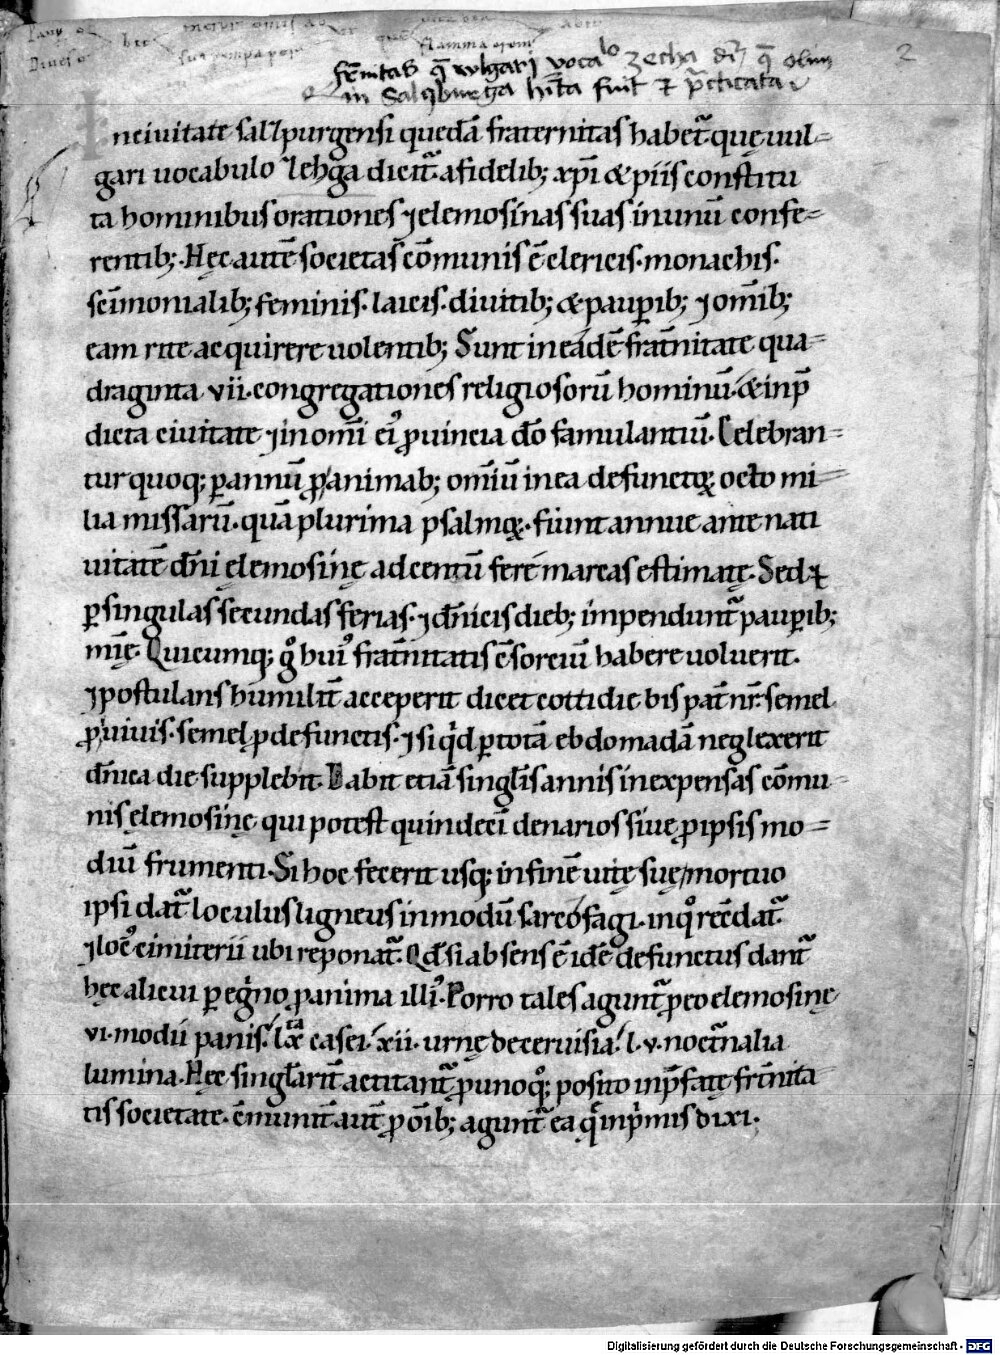 fr̄nitas q̄ wlgari vocalo zecha dr̄ q̄ olim
in Salczburga hīta fuit ⁊ p̄cticata
2
nciuitate salzpurgensi quedā fraternitas habet᷑ quę uul=
gari uocabulo Zehga dicit᷑ a fidelib; xp̄i & piis constitu
ta hominibus orationes ⁊ elemosinas suas in unū confe=
rentib; . Hęc autē societas cōmunis ē clericis . monachis .
sc̄imonialib; feminis . laicis . diuitib; & paup̄ib; ⁊ om̄ib;
eam rite acquirere uolentib; Sunt in eadē frat̄nitate qua=
draginta vii . congregationes religiosorū hominū . & in p̄
dicta ciuitate ⁊ in om̄i ei᷒ ꝓuincia dō famulantiū . Celebran=
tur quoq; ꝑ annū ꝓ animab; om̄iū in ea defunctoꝝ octo mi=
lia missarū . quā plurima psalmoꝝ . fiunt annue ante nati
uitatē dn̄i elemosinę ad centū ferē marcas estimatę . Sed ⁊
ꝑ singulas secundas ferias . ⁊ dn̄icis dieb; impendunt᷑ pauꝑib;
mīę . Quicumq; g° hui᷒ frat̄nitatis ē sorciū habere uoluerit .
⁊ postulans humilit̄ acceperit dicet cottidie bis pat̄ nr̄ . semel
ꝓ uiuis . semel ꝓ defunctis . ⁊ si qͥd ꝑ totā ebdomadā neglexerit
dn̄ica die supplebit . Dabit etiā singlis annis in expensas cōmu=
nis elemosinę qui potest quindecī denarios siuę ꝓ ipsis mo=
diū frumenti . Si hoc fecerit usq; in finē uitę suę mortuo
ipsi dat᷑ loculus ligneus in modū sarcofagi . in qͦ rec̄dat᷑
⁊ loc᷒ cimiterii ubi reponat᷑ . Qd̄ si absens ē idē defunctus dant᷑
hęc alicui ꝑegͥno ꝓ anima illi᷒ . Porro tales agunt᷑ ꝓ eo elemosinę
vi . modii panis . lxta casei . xii . urnę de ceruisia . l . v . noct̄nalia
lumina . Hęc singlarit̄ actitant᷑ ꝓ unoqͦ; posito in p̄fatę frt̄nita=
tis societate . cōmunit̄ aut̄ ꝓ ōib; agunt᷑ ea q̄ in pͥmis dixi .
Digitalisierung gefördert durch die Deutsche Forschungsgemeinschaft - DFG